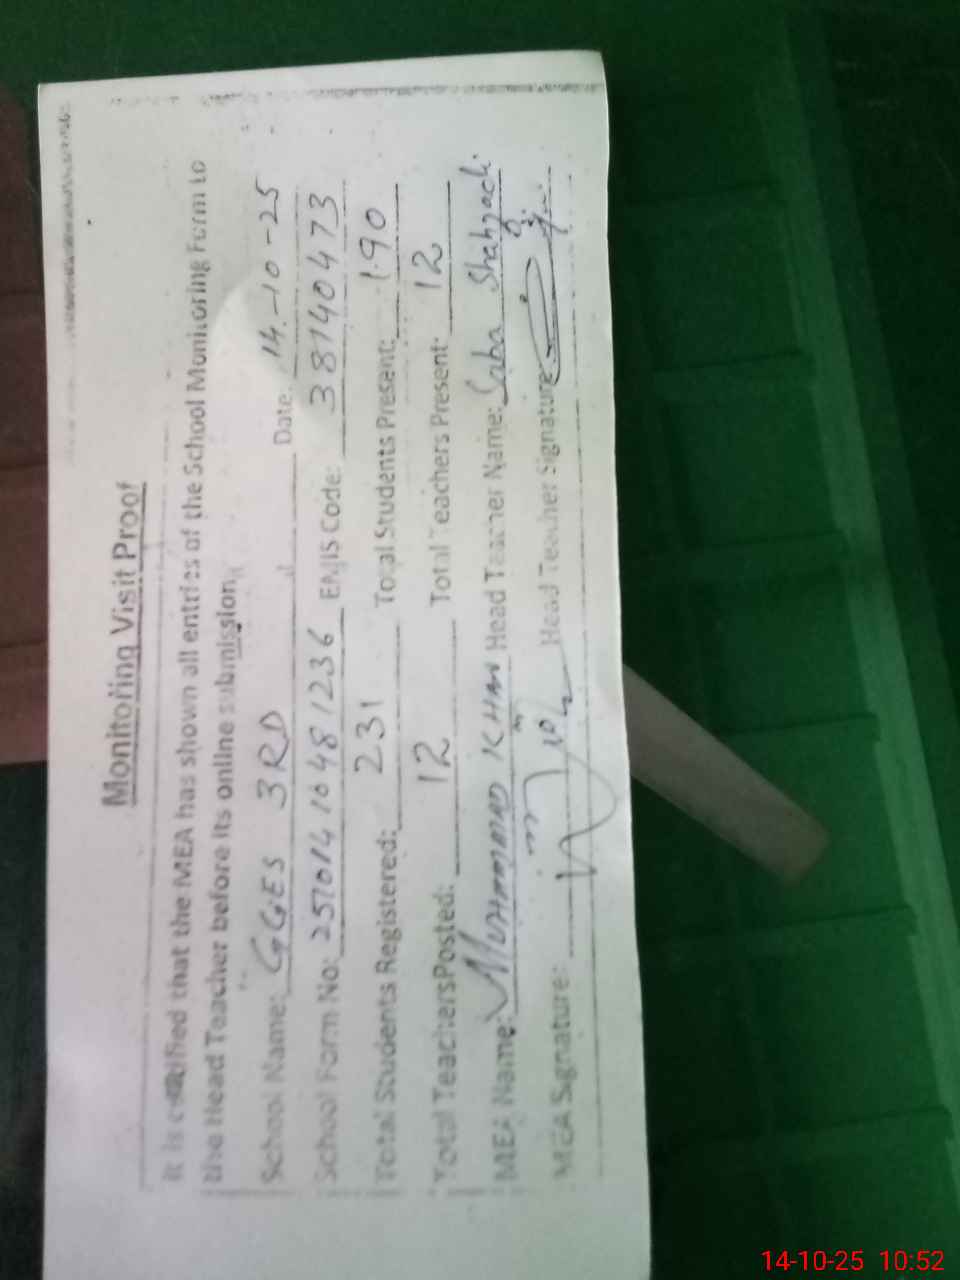 Monitoring Visit Proof
It is certified that the MEA has shown all entries of the School Monitoring Form to
the Head Teacher before its online submission.
School Name: GGES 3RD Date: 14-10-25
School Form No: 257014 1048 1236 EMIS Code: 38140473
Total Students Registered: 231 Total Students Present: 190
Total Teachers Posted: 12 Total Teachers Present: 12
MEA Name: MUHAMMAD KHAN Head Teacher Name: Saba Shahzadi
MEA Signature: Head Teacher Signature:
14-10-25 10:52